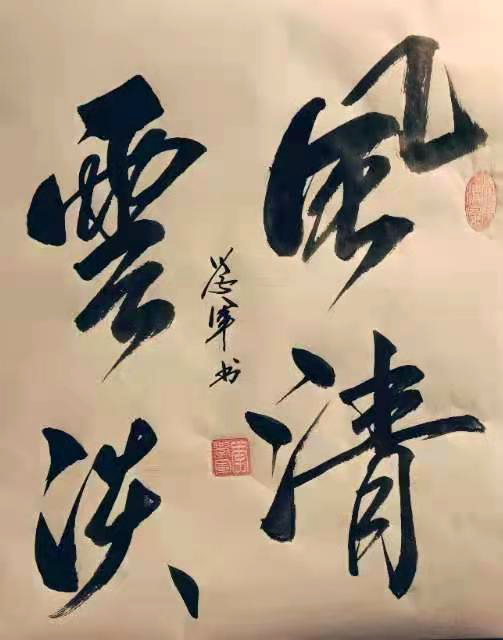 風清
雲淡
軍书